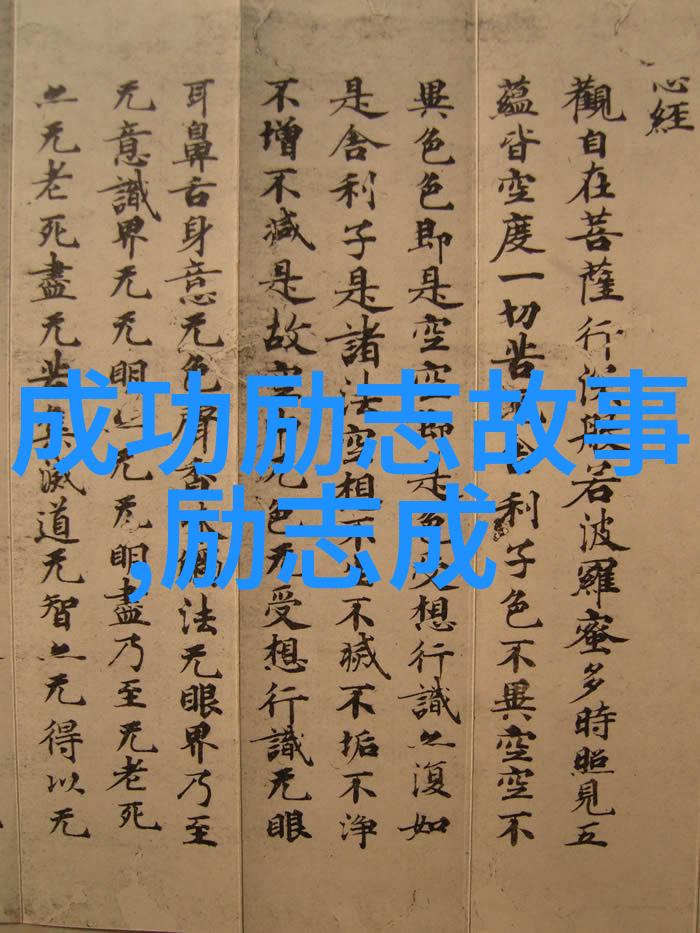 心経
觀自在菩薩行深般若波羅蜜多時照見五
蘊皆空度一切苦厄舍利子色不異空空不
異色色即是空空即是色受想行識亦復如
是舍利子是諸法空相不生不滅不垢不淨
不增不減是故空中无色无受想行識无眼
耳鼻舌身意无色聲香味觸法无眼界乃至
无意識界无无明亦无无明盡乃至无老死
亦无老死盡无苦集滅道无智亦无得以无
成功励志故事
,励志成